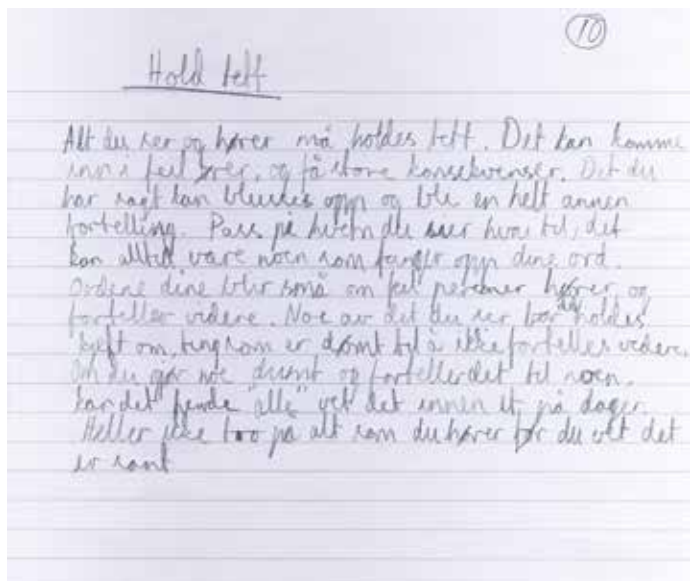 10
Hold tett
Alt du ser og hører må holdes tett. Det kan komme
inn i feil ører, og få store konsekvenser. Det du
har sagt kan blåses opp og bli en helt annen
fortelling. Pass på hvem du sier hva til, det
kan alltid være noen som fanger opp dine ord.
Ordene dine blir små om feil personer hører og
forteller videre. Noe av det du ser bør holdes
kjeft om, ting som er dømt til å ikke fortelles videre.
Om du gjør noe dumt og forteller det til noen,
kan det hende "alle" vet det innen et på dager.
Heller ikke tro på alt som du hører før du vet det
er sant